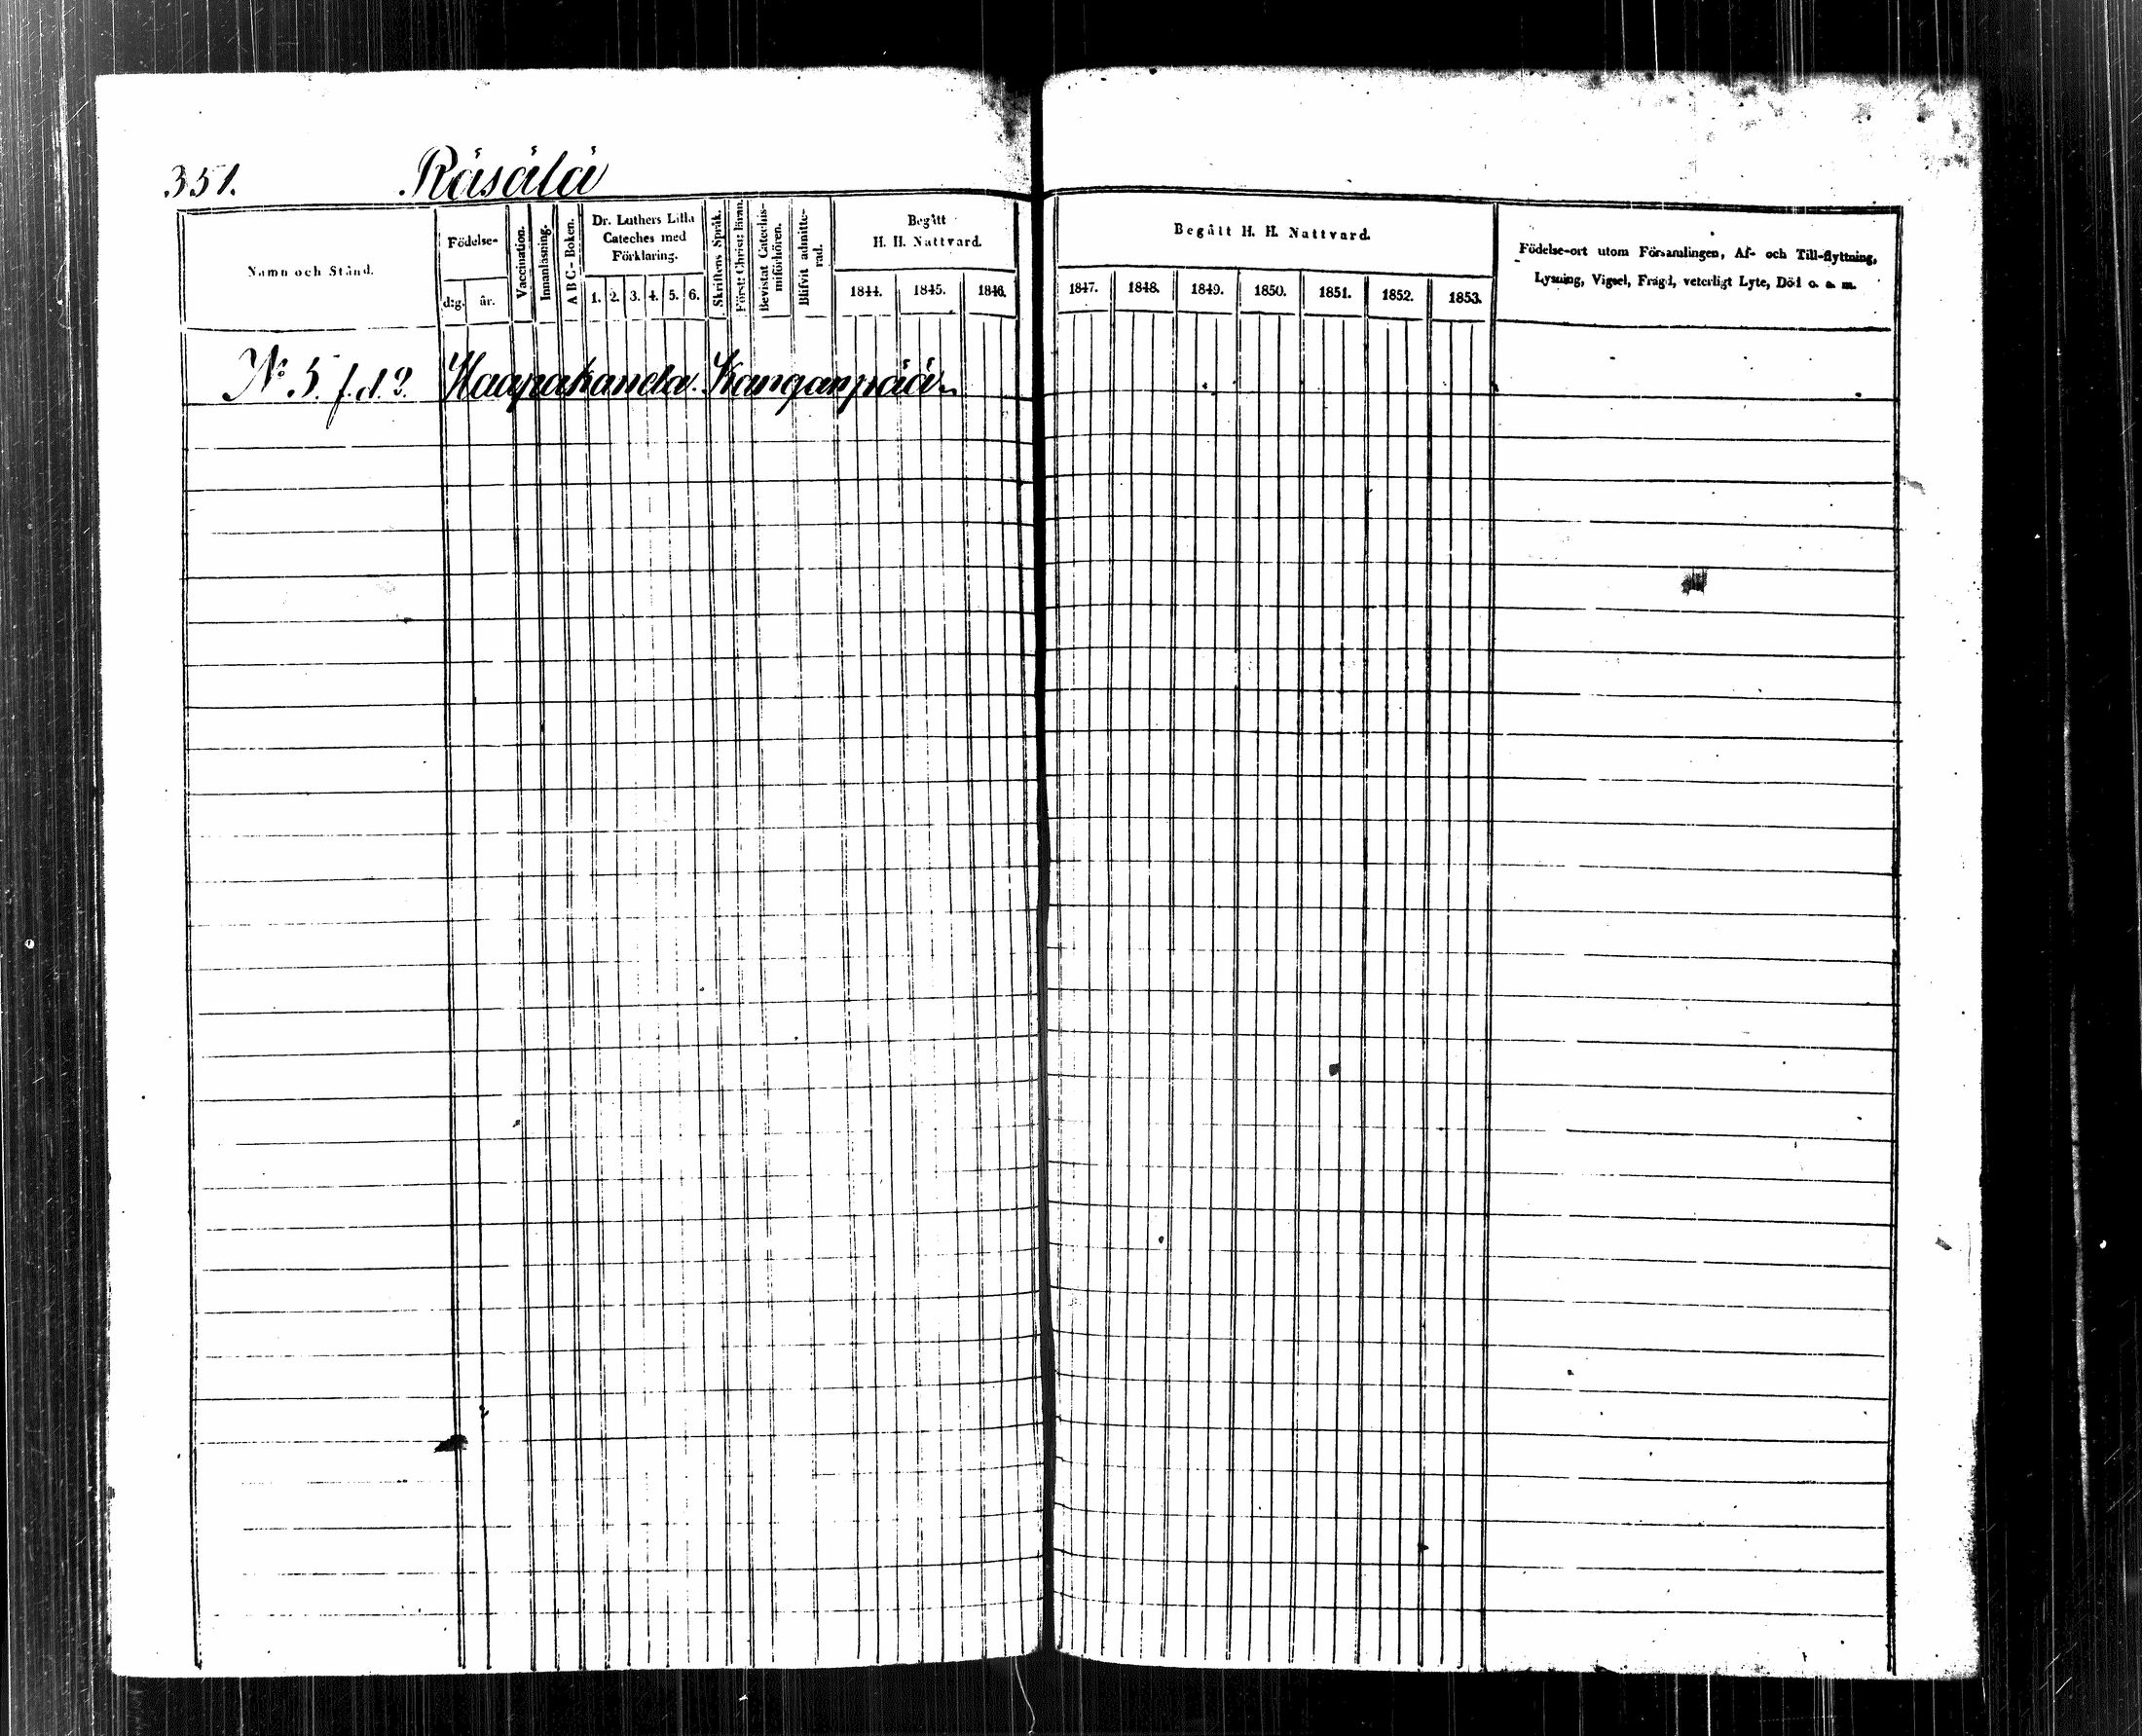 351. Räsälä
Namn och Stånd.
Födelse-
d:g. år.
Vaccination.
Innanläsning.
A B C - Boken.
Dr. Luthers Lilla
Cateches med
Förklaring.
1. 2. 3. 4. 5. 6.
Skriftens Språk.
Bevistat Catechis-
miförhören.
Blifvit admitte-
rad.
Begått
H. H. Nattvard.
1844. 1845. 1846.
Begått H. H. Nattvard.
1847. 1848. 1849. 1850. 1851. 1852. 1853.
Födelse-ort utom Församlingen, Af- och Till-flyttning,
Lysning, Vigsel, Frägd, veterligt Lyte, Död o. s. m.
N:o 5. f.d. 2. Haapakanda. Kanganpää